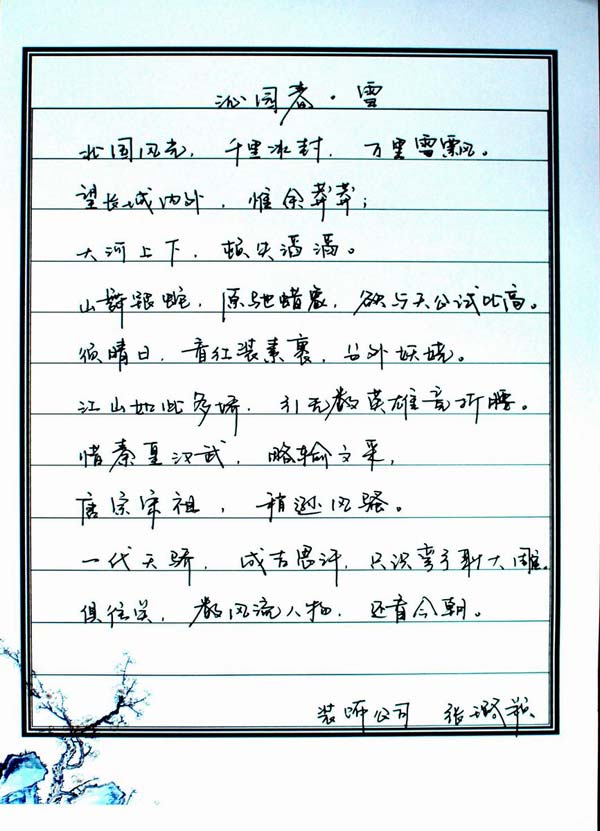 沁园春·雪
北国风光，千里冰封，万里雪飘。
望长城内外，惟余莽莽；
大河上下，顿失滔滔。
山舞银蛇，原驰蜡象，欲与天公试比高。
须晴日，看红装素裹，分外妖娆。
江山如此多娇，引无数英雄竞折腰。
惜秦皇汉武，略输文采，
唐宗宋祖，稍逊风骚。
一代天骄，成吉思汗，只识弯弓射大雕。
俱往矣，数风流人物，还看今朝。
装饰公司 张